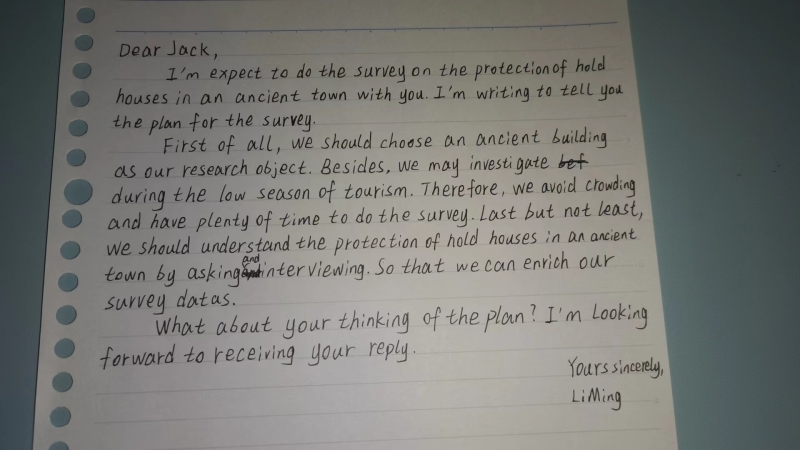 Dear Jack,
I'm expect to do the survey on the protection of hold
houses in an ancient town with you. I'm writing to tell you
the plan for the survey.
First of all, we should choose an ancient building
as our research object. Besides, we may investigate bef
during the low season of tourism. Therefore, we avoid crowding
and have plenty of time to do the survey. Last but not least,
we should understand the protection of hold houses in an ancient
town by asking and interviewing. So that we can enrich our
survey datas.
What about your thinking of the plan? I'm looking
forward to receiving your reply.
Yours sincerely,
LiMing